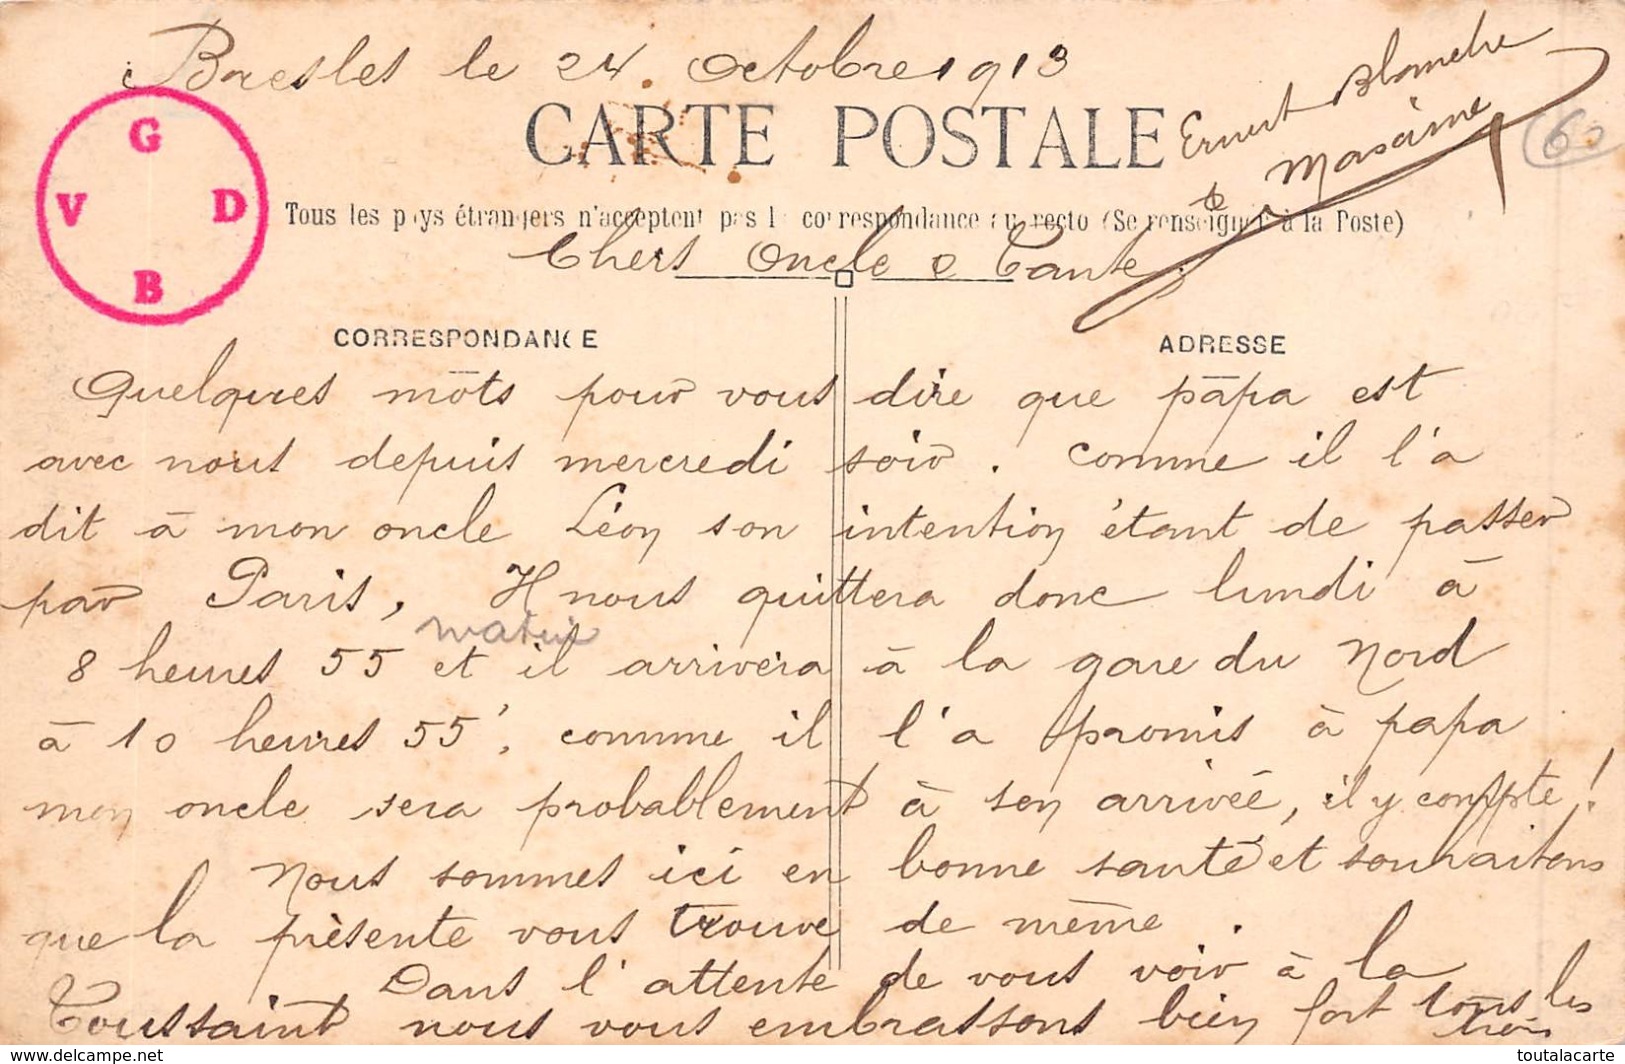 Bresles le 24 Octobre 1913
Ernest Blanche
&
CARTE POSTALE
60
G
V D
B
Tous les pays étrangers n'acceptent pas la correspondance au recto (Se renseigner à la Poste)
Chers Oncle & Tante
CORRESPONDANCE
ADRESSE
Quelques mots pour vous dire que papa est
avec nous depuis mercredi soir. comme il l'a
dit à mon oncle Léon son intention étant de passer
par Paris, Il nous quittera donc lundi à
matin
8 heures 55 et il arrivera à la gare du Nord
à 10 heures 55', comme il l'a promis à papa
mon oncle sera probablement à son arrivée, il y compte!
Nous sommes ici en bonne santé et souhaitons
que la présente vous trouve de même.
Dans l'attente de vous voir à la
Toussaint nous vous embrassons bien fort tous les
trois
toutalacarte